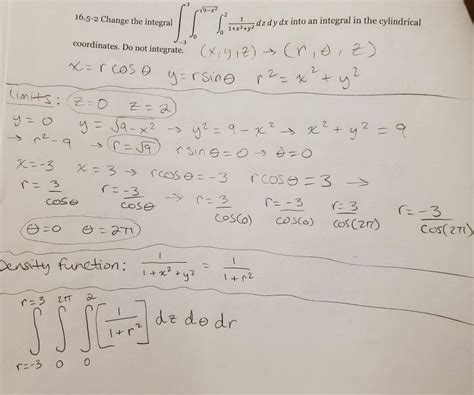 16.5-2 Change the integral ∫₋₃³ ∫₀^√(9-x²) ∫₀² 1/(1+x²+y²) dz dy dx into an integral in the cylindrical
coordinates. Do not integrate. (x,y,z) → (r, θ, z)
x = r cos θ y = r sin θ r² = x² + y²
Limits: z = 0 z = 2
y = 0 y = √9-x² → y² = 9 - x² → x² + y² = 9
→ r² - 9 → r = √9 r sin θ = 0 → θ = 0
x = -3 x = 3 → r cos θ = -3 r cos θ = 3 →
r = 3/cos θ r = -3/cos θ → r = 3/cos(0) r = -3/cos(0) r = 3/cos(2π) r = -3/cos(2π)
θ = 0 θ = 2π
Density function: 1/(1+x²+y²) = 1/(1+r²)
∫_{r=-3}^{r=3} ∫₀^{2π} ∫₀² [1/(1+r²)] dz dθ dr